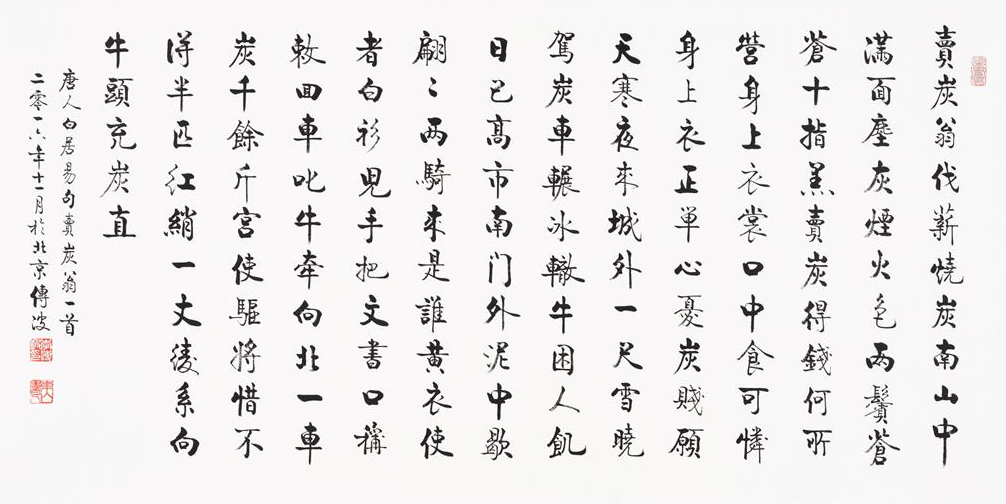 賣炭翁伐薪燒炭南山中
滿面塵灰煙火色兩鬢蒼
蒼十指黑賣炭得錢何所
營身上衣裳口中食可憐
身上衣正單心憂炭賤願
天寒夜來城外一尺雪曉
駕炭車輾冰轍牛困人飢
日已高市南门外泥中歇
翩〻兩騎来是誰黄衣使
者白衫兒手把文書口稱
敕回車叱牛牽向北一車
炭千餘斤宮使驅將惜不
得半匹紅綃一丈綾系向
牛頭充炭直
唐人白居易句賣炭翁一首
二零一六年十一月於北京傳波